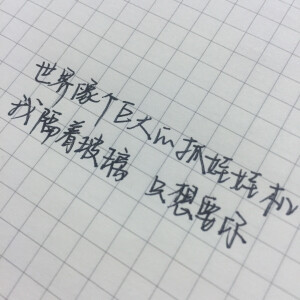 世界像个巨大的抓娃娃机
我隔着玻璃 只想要你